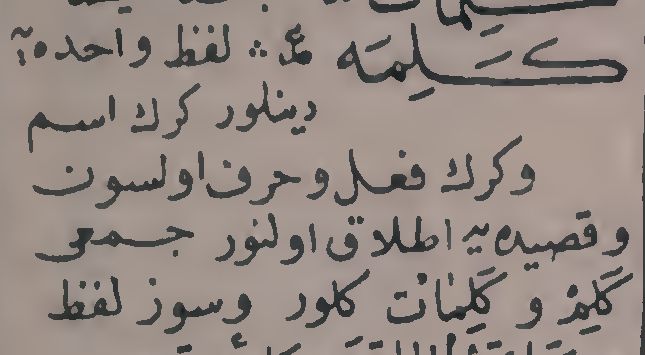 كَلِمَه عر ∴ لفظ واحده يه
دينلور كرك اسم
وكرك فعل و حرف اولسون
و قصيده يه اطلاق اولنور جمعى
كَلِمْ و كَلِمَات كلور وسوز لفظ